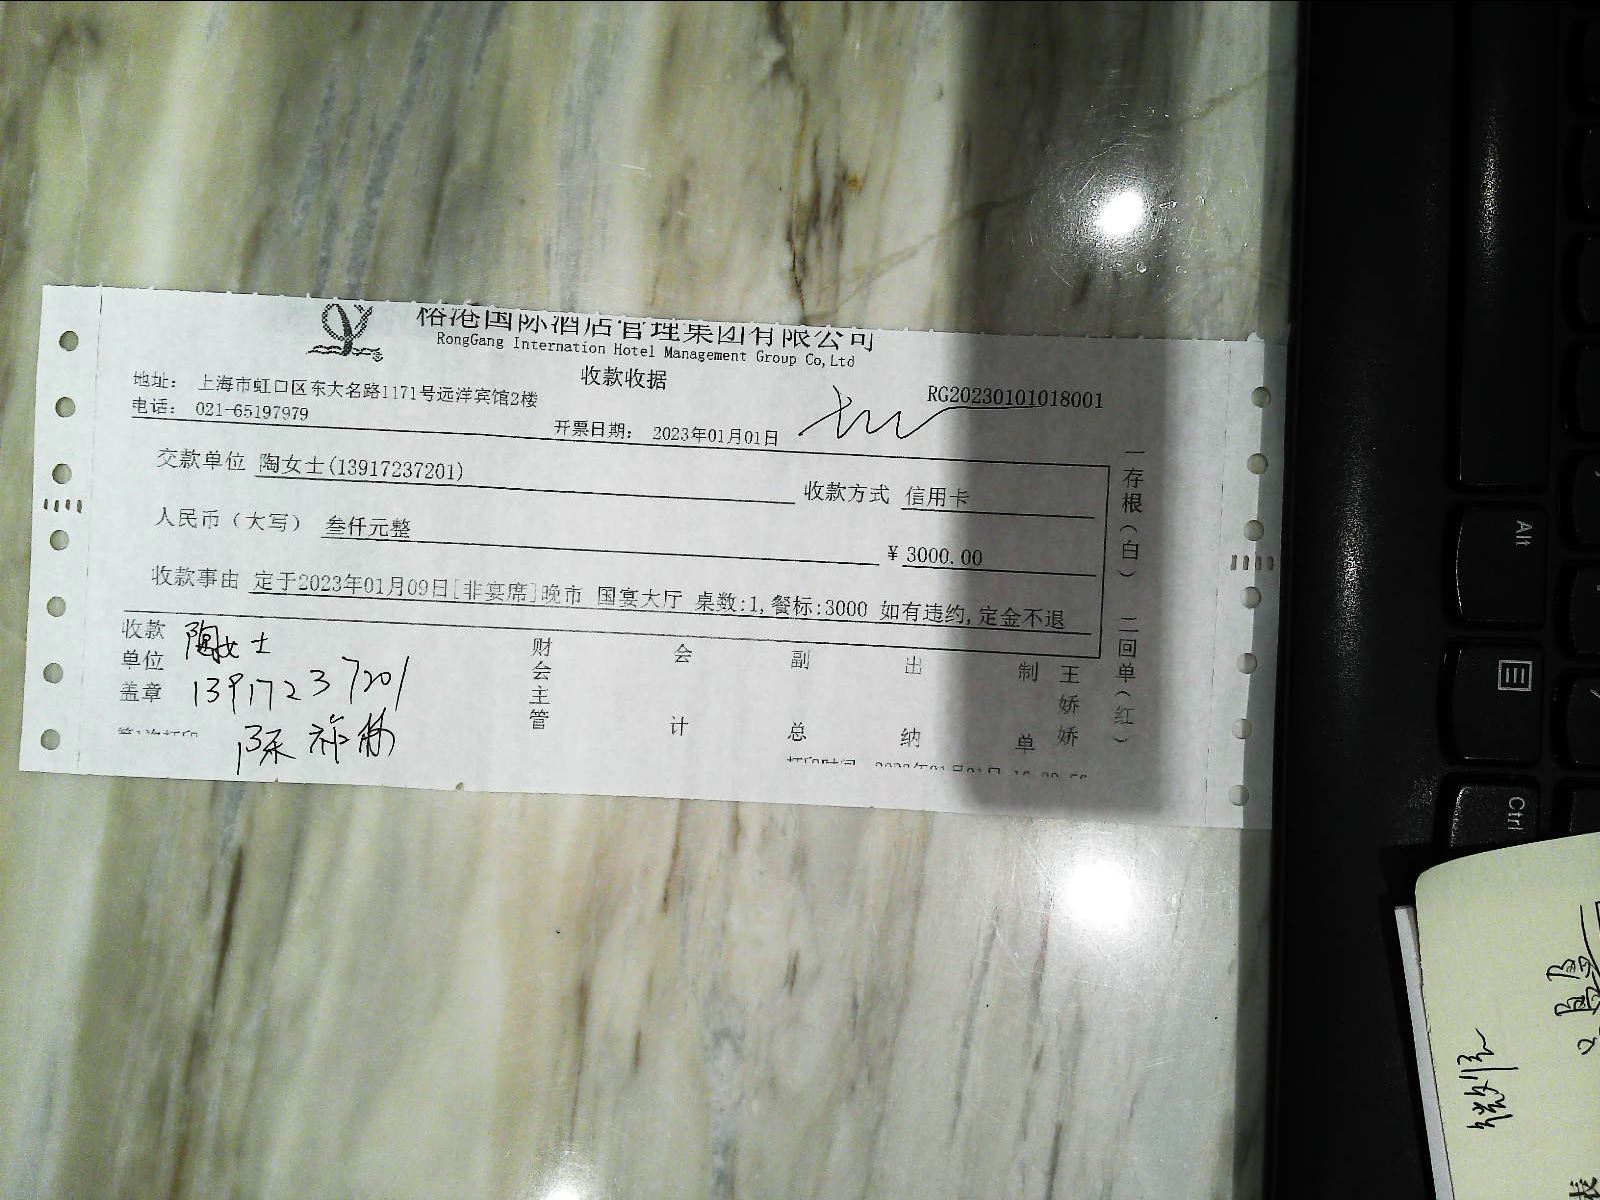 榕港国际酒店管理集团有限公司
RongGang Internation Hotel Management Group Co,Ltd
收款收据
地址： 上海市虹口区东大名路1171号远洋宾馆2楼
电话： 021-65197979
开票日期： 2023年01月01日
RG20230101018001
交款单位 陶女士(13917237201)
收款方式 信用卡
人民币（大写） 叁仟元整
￥3000.00
收款事由 定于2023年01月09日[非宴席]晚市 国宴大厅 桌数:1,餐标:3000 如有违约,定金不退
一存根(白) 二回单(红)
收款单位盖章
陶女士
13917237201
财会主管
会计
副总
出纳
制单
王娇娇
第1次打印
Alt
Ctrl